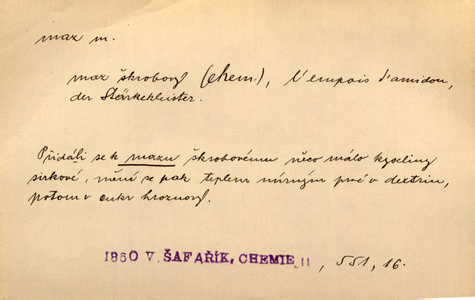 maz m.
maz škrobový (chem.), l'empois d'amidon,
der Stärkekleister.
Přidáli se k mazu škrobovému něco málo kyseliny
sirkové, mění se pak teplem mírným prvé v dextrin,
potom v cukr hroznový.
1860 V. ŠAFAŘÍK, CHEMIE II, 551, 16.